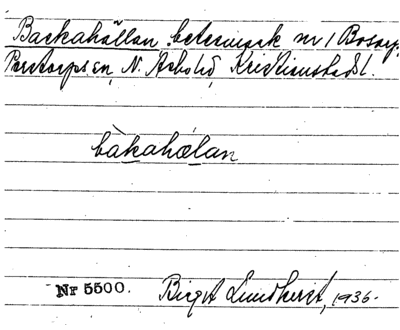 Backahällan, betesmark nr 1 Bosarp,
Perstorps sn, N. Åsbo hd, Kristianstads l.
bàkahælan
Nr 5500. Birgit Lundkvist, 1936.